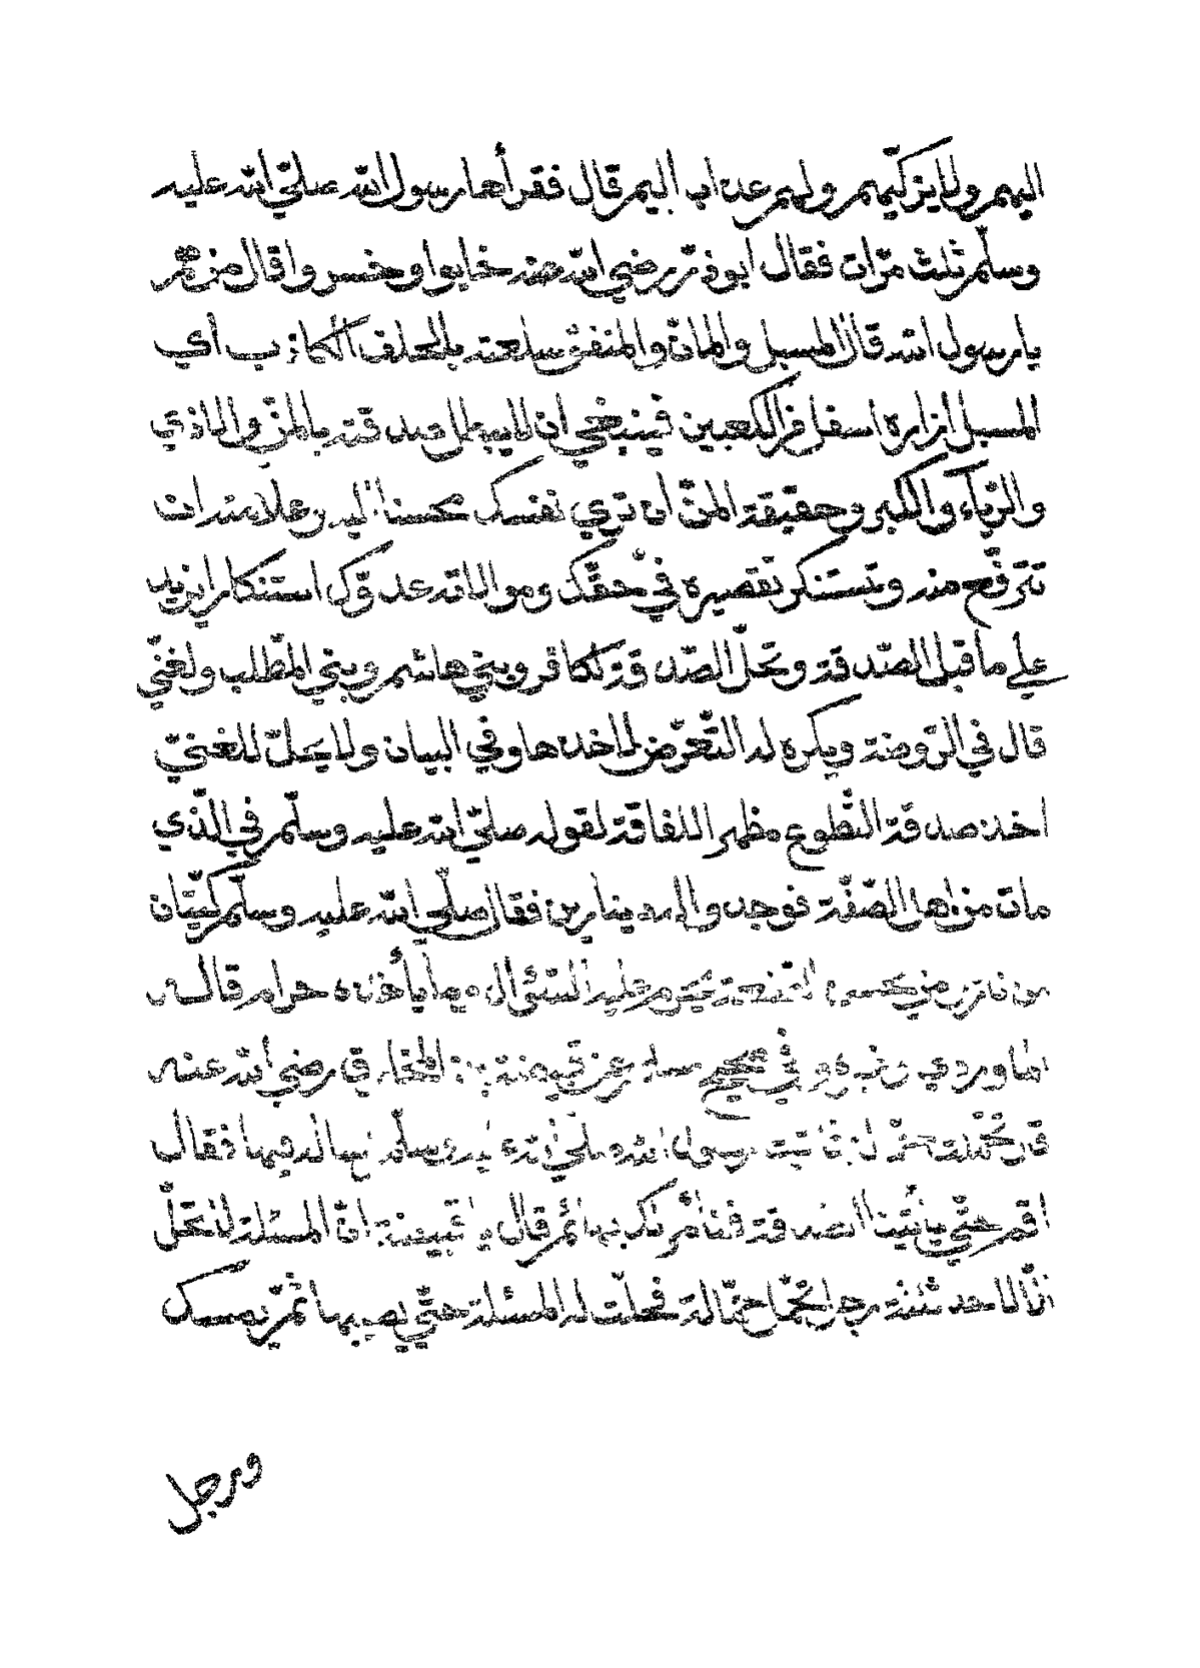 اليهم ولا يزكيهم ولهم عذاب اليم قال فقرأها رسول الله صلى الله عليه
وسلّم ثلث مرّات فقال ابو ذرّ رضي الله عنه خابوا وخسروا قال من هم
يا رسول الله قال المسبل والمانّ والمنفق سلعته بالحلف الكاذب أي
المسبل ازاره اسفل من الكعبين فينبغي ان لا يبطل صدقته بالمنّ والاذي
والريآء والكبر وحقيقة المنّ ان تري نفسك محسنا اليه وعلامته ان
تترفّع منه وتستنكر تقصيره في حقّك وموالاته عدوّك استنكارا يزيد
علي ما قبل الصّدقة وتحلّ الصّدقة لكافر وبني هاشم وبني المطّلب ولغنيّ
قال في الرّوضة ويكره له التّعرّض لاخذها وفي البيان ولا يحلّ للغنيّ
اخذ صدقة التّطوع مظهرا للفاقة لقوله صلّي الله عليه وسلّم في الّذي
مات من اهل الصّفّة فوجدوا له دينارين فقال صلّي الله عليه وسلّم كيّتان
من نار عليه السّئوال وما يأخذه حرام قاله
الماوردي وغيره وفي صحيح مسلم عن قبيصة بن المخارق رضي الله عنه
قال تحمّلت حمّالة فأتيت رسول الله صلي الله عليه وسلّم نسأله فيها فقال
اقم حتّي يأتينا الصّدقة فنأمر لك بها ثمّ قال يا قبيصة انّ المسئلة لا تحلّ
الّا لاحد ثلثة رجل تحمّل حمّالة فحلّت له المسئلة حتّي يصيبها ثمّ يمسك
ورجل